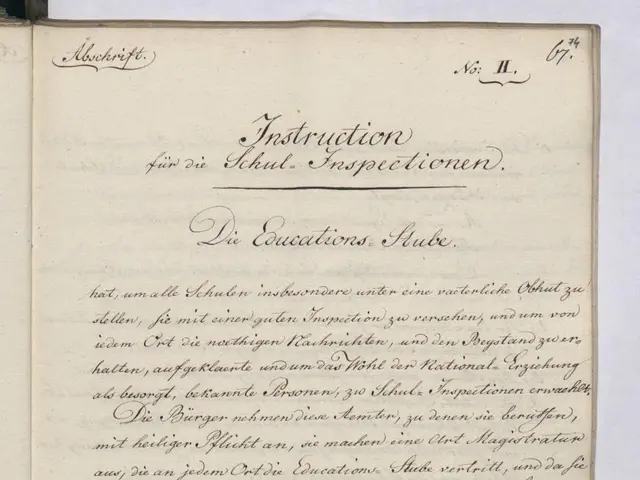 Abschrift.
67. 74
No: II.
Instruction
für die Schul-Inspectionen.
Die Educations-Stube.
hat, um alle Schulen insbesondere unter eine vaeterliche Obhut zu
stellen, sie mit einer guten Inspection zu versehen, und um von
iedem Ort die noethigen Nachrichten, und den Beystand zu er-
halten, aufgeklaerte und um das Wohl der National-Erziehung
als besorgt, bekannte Personen, zu Schul-Inspectionen erwaehlt.
Die Bürger nehmen diese Aemter, zu denen sie beruffen,
mit heiliger Pflicht an, sie machen eine Art Magistratur
aus, die an jedem Ort die Educations-Stube vertritt, und da sie